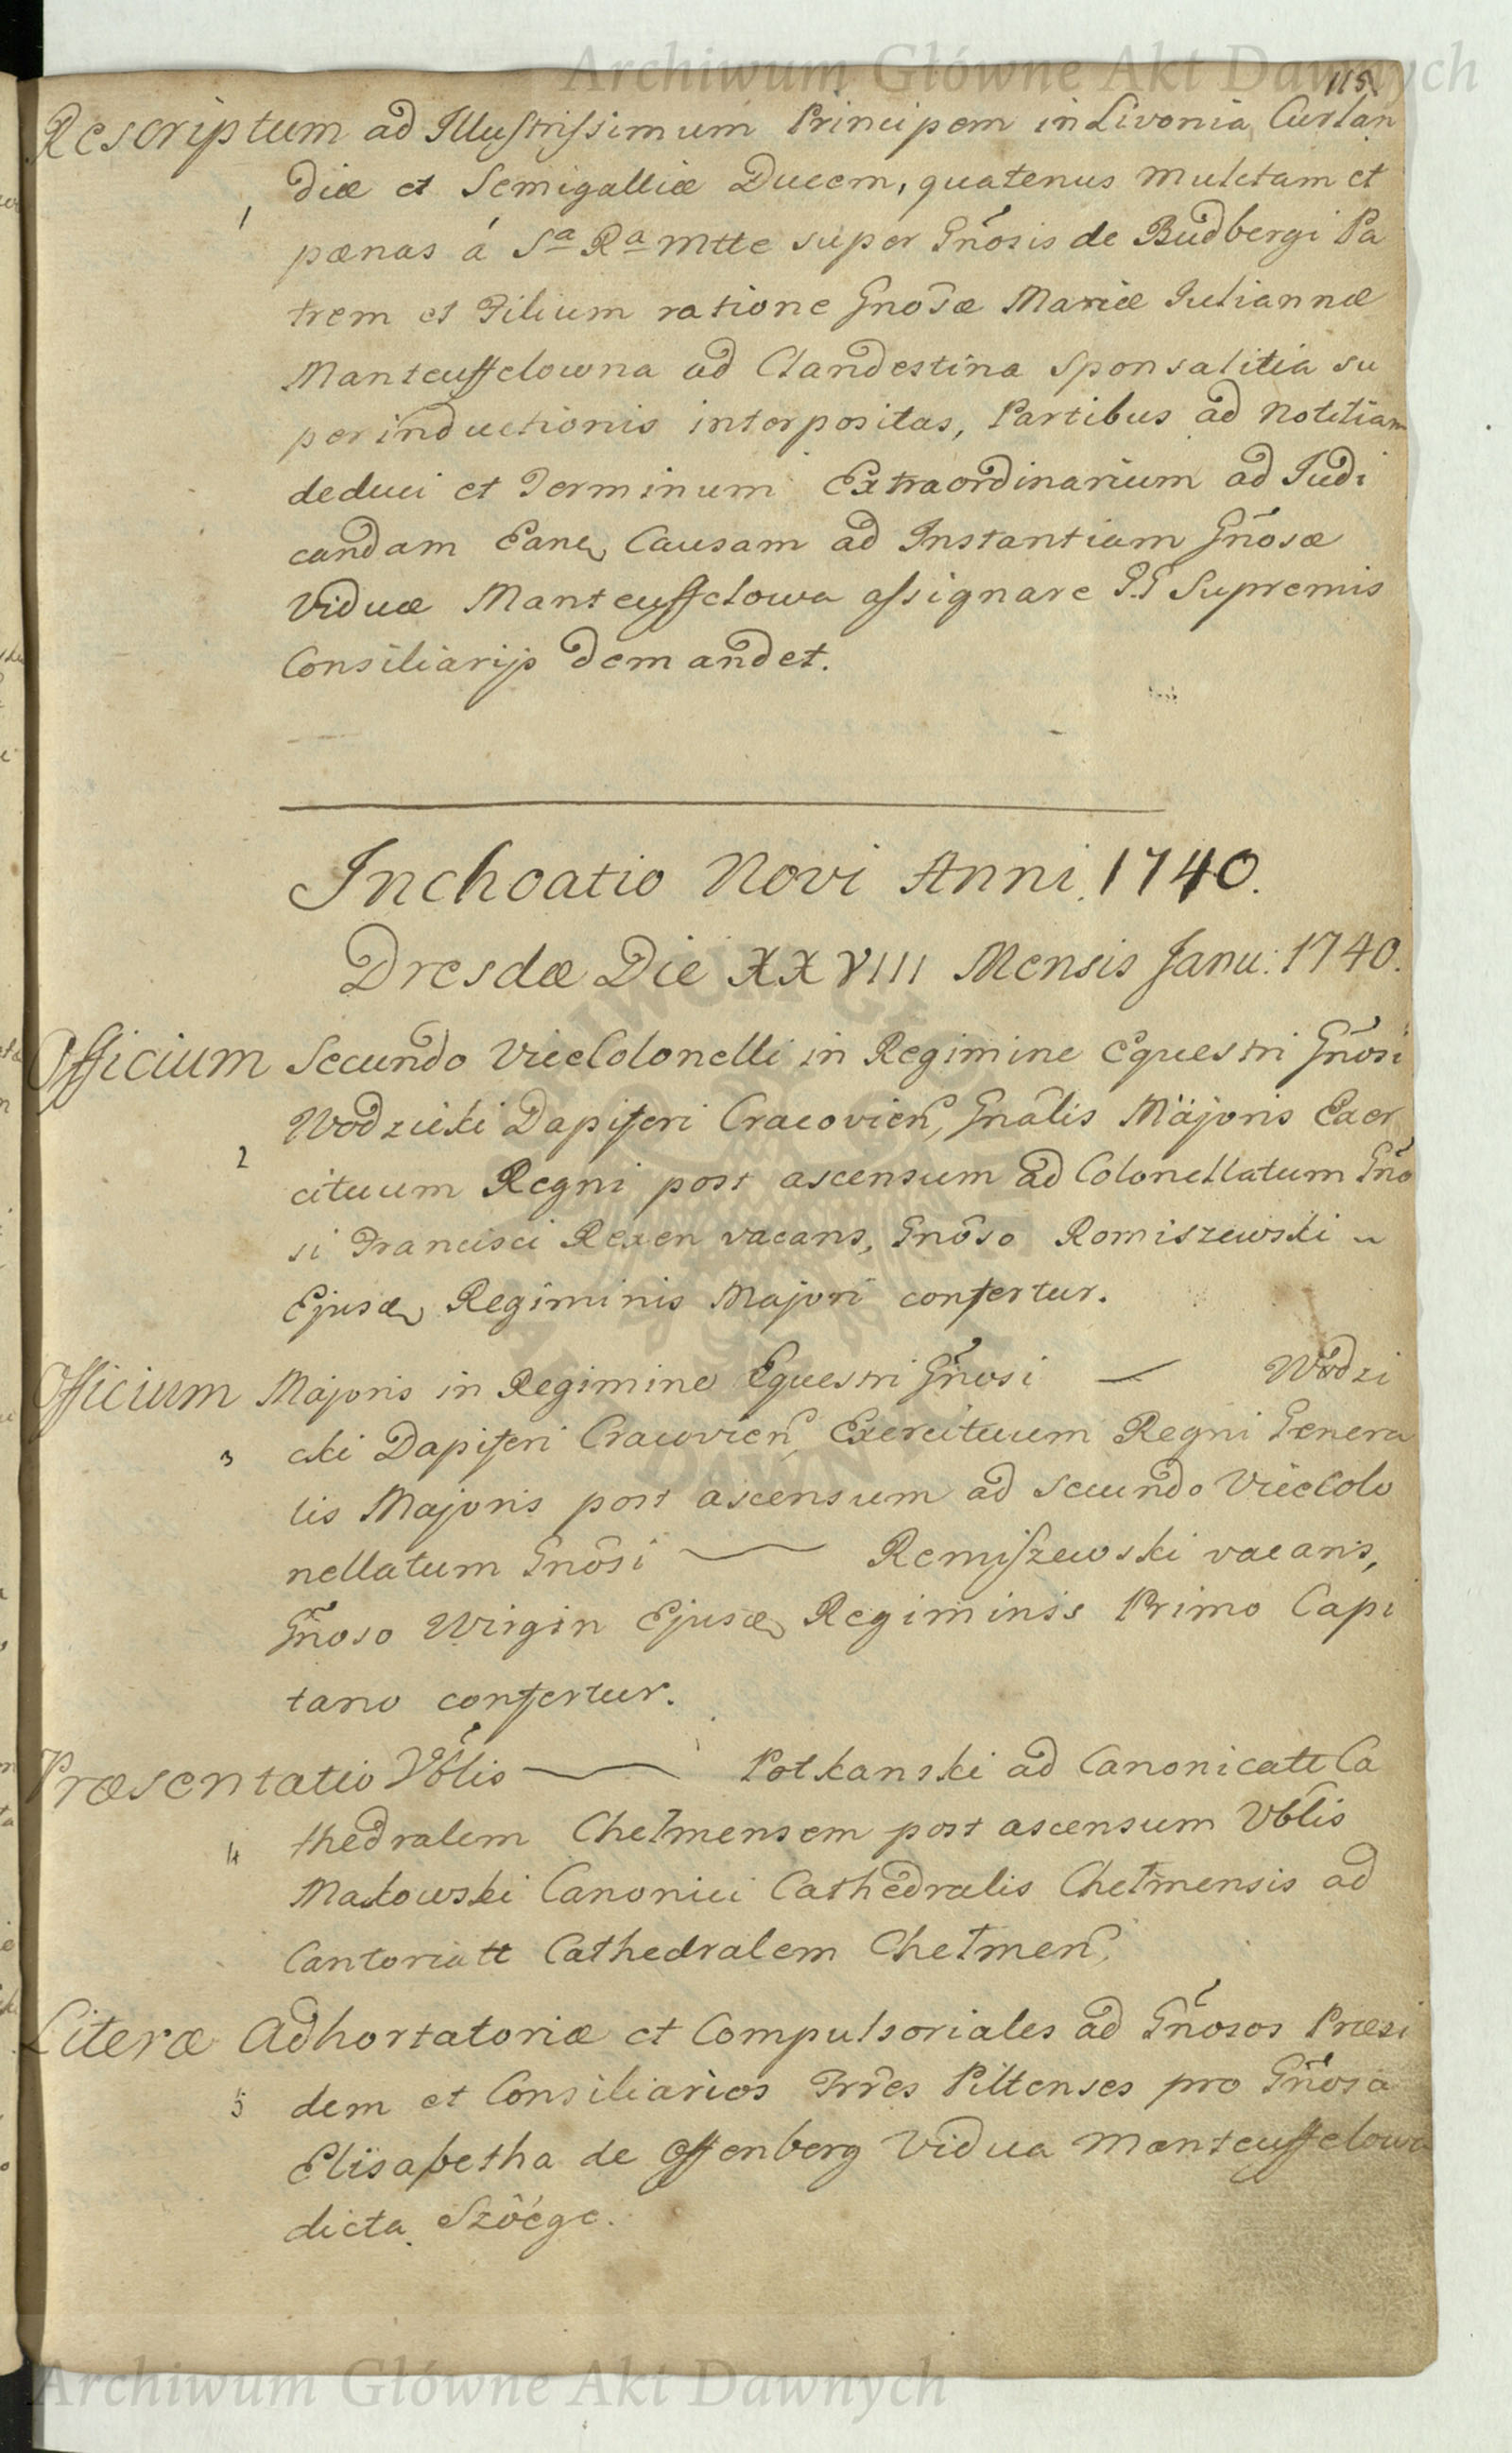 Archiwum Główne Akt Dawnych
115
Rescriptum ad Illustrissimum Principem in Livonia, Curlan
diæ et Semigalliæ Ducem, quatenus mulctam et
1
pœnas á Sa Ra Mtte super Gnosis de Budbergi Pa
trem et Filium ratione Gnosæ Mariæ Juliannæ
Manteuffelowna ad Clandestina Sponsalitia su
perinductionis interpositas, Partibus ad Notitiam
deduci et Terminum Extraordinarium ad Judi
candam Eanq Causam ad Instantiam Gnosæ
Viduæ Manteuffelowa assignare P.P Supremis
Consiliarijs demandet.
Inchoatio Novi Anni. 1740.
Dresdæ Die XXVIII Mensis Janu: 1740.
Officium Secundo ViceColonelli in Regimine Equestri Gnosi
Wodzicki Dapiferi Cracovien, Gnalis Majoris Exer
2
cituum Regni post ascensum ad Colonellatum Gno
si Francisci Rexen vacans, Gnoso Romiszewski
Ejusdq Regiminis Majori confertur.
Officium Majoris in Regimine Equestri Gnosi — Wodzi
3
cki Dapiferi Cracovien Exercituum Regni Genera
lis Majoris post ascensum ad Secundo ViceColo
nellatum Gnosi — Remiszewski vacans,
Gnoso Wirgin Ejusdq Regiminis Primo Capi
tano confertur.
Præsentatio Vblis — Potkanski ad Canonicatt Ca
4
thedralem Chełmensem post ascensum Vblis
Makowski Canonici Cathedralis Chełmensis ad
Cantoriatt Cathedralem Chełmen,
Literæ Adhortatoriæ et Compulsoriales ad Gnosos Præsi
5
dem et Consiliarios Trres Piltenses pro Gnosa
Elisabetha de Offenberg Vidua Manteuffelowa
dicta Szöege.
Archiwum Główne Akt Dawnych